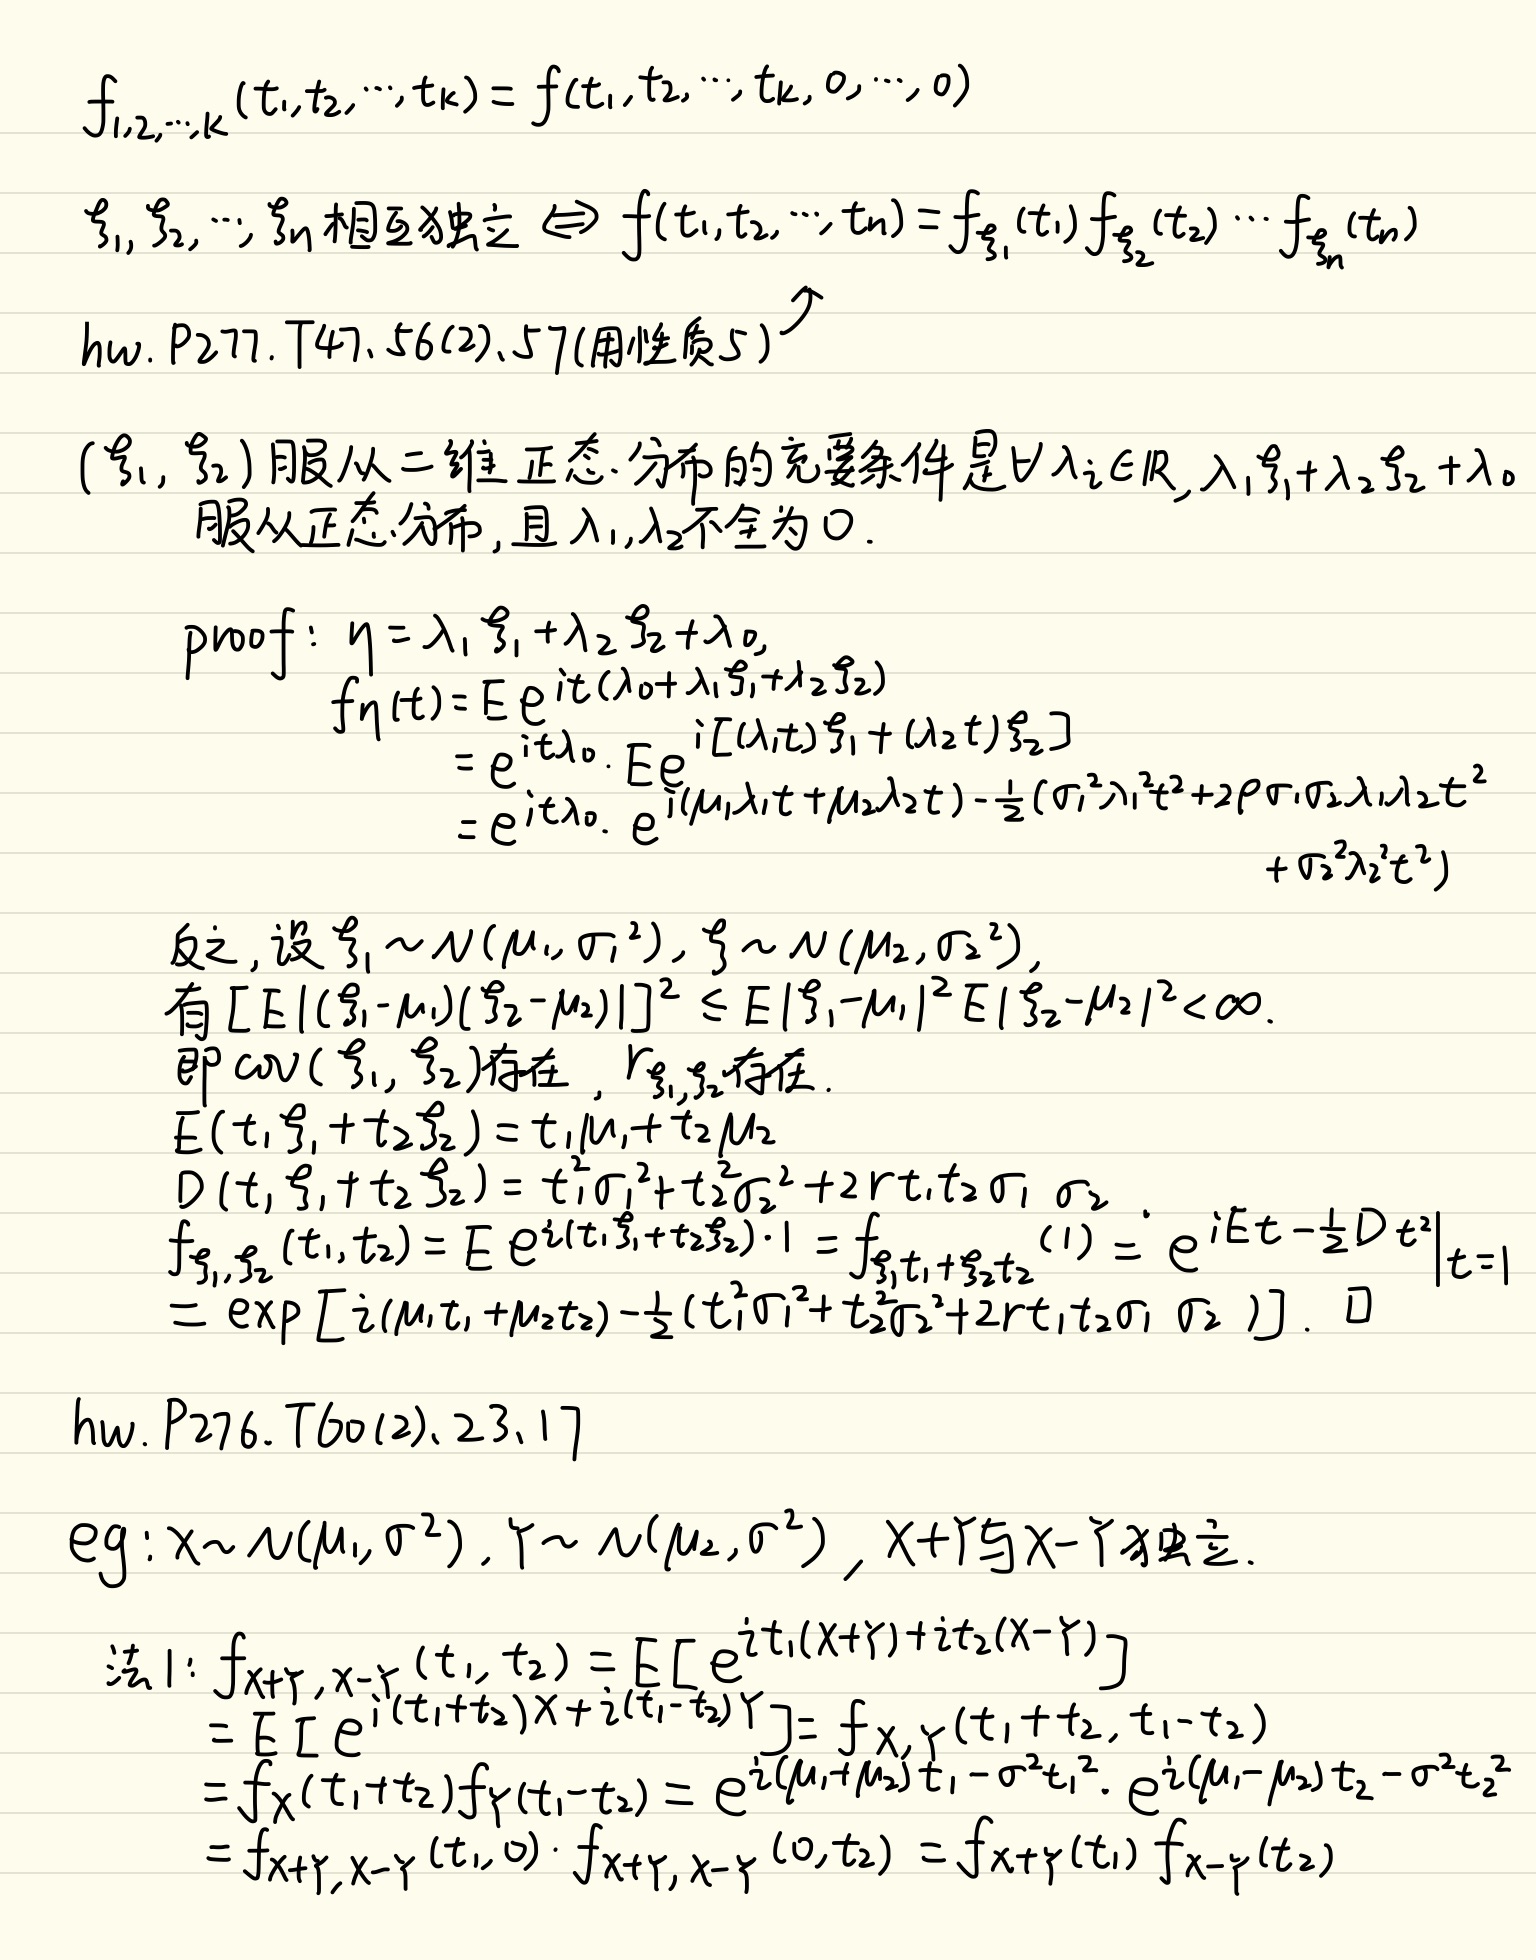 f₁,₂,…,ₖ(t₁,t₂,…,tₖ) = f(t₁,t₂,…,tₖ,0,…,0)
ξ₁,ξ₂,…,ξₙ相互独立 ⟺ f(t₁,t₂,…,tₙ) = f_ξ₁(t₁)f_ξ₂(t₂)…f_ξₙ(tₙ)
hw. P277. T47、56(2)、57(用性质5)↗
(ξ₁,ξ₂)服从二维正态分布的充要条件是∀λᵢ∈ℝ, λ₁ξ₁+λ₂ξ₂+λ₀
服从正态分布,且λ₁,λ₂不全为0.
proof: η=λ₁ξ₁+λ₂ξ₂+λ₀,
f_η(t) = E e^{it(λ₀+λ₁ξ₁+λ₂ξ₂)}
= e^{itλ₀}·E e^{i[(λ₁t)ξ₁+(λ₂t)ξ₂]}
= e^{itλ₀}·e^{i(μ₁λ₁t+μ₂λ₂t)-½(σ₁²λ₁²t²+2ρσ₁σ₂λ₁λ₂t²
+σ₂²λ₂²t²)}
反之,设ξ₁~N(μ₁,σ₁²),ξ~N(μ₂,σ₂²),
有[E|(ξ₁-μ₁)(ξ₂-μ₂)|]² ≤ E|ξ₁-μ₁|²E|ξ₂-μ₂|²<∞.
即cov(ξ₁,ξ₂)存在, r_{ξ₁,ξ₂}存在.
E(t₁ξ₁+t₂ξ₂) = t₁μ₁+t₂μ₂
D(t₁ξ₁+t₂ξ₂) = t₁²σ₁²+t₂²σ₂²+2rt₁t₂σ₁σ₂
f_{ξ₁,ξ₂}(t₁,t₂) = E e^{i(t₁ξ₁+t₂ξ₂)·1} = f_{ξ₁t₁+ξ₂t₂}(1) = e^{iEt-½Dt²}|_{t=1}
= exp[i(μ₁t₁+μ₂t₂)-½(t₁²σ₁²+t₂²σ₂²+2rt₁t₂σ₁σ₂)]. □
hw. P276. T60(2)、23、17
eg: X~N(μ₁,σ²), Y~N(μ₂,σ²), X+Y与X-Y独立.
法1: f_{X+Y,X-Y}(t₁,t₂) = E[e^{it₁(X+Y)+it₂(X-Y)}]
= E[e^{i(t₁+t₂)X+i(t₁-t₂)Y}] = f_{X,Y}(t₁+t₂,t₁-t₂)
= f_X(t₁+t₂)f_Y(t₁-t₂) = e^{i(μ₁+μ₂)t₁-σ²t₁²}·e^{i(μ₁-μ₂)t₂-σ²t₂²}
= f_{X+Y,X-Y}(t₁,0)·f_{X+Y,X-Y}(0,t₂) = f_{X+Y}(t₁)f_{X-Y}(t₂)